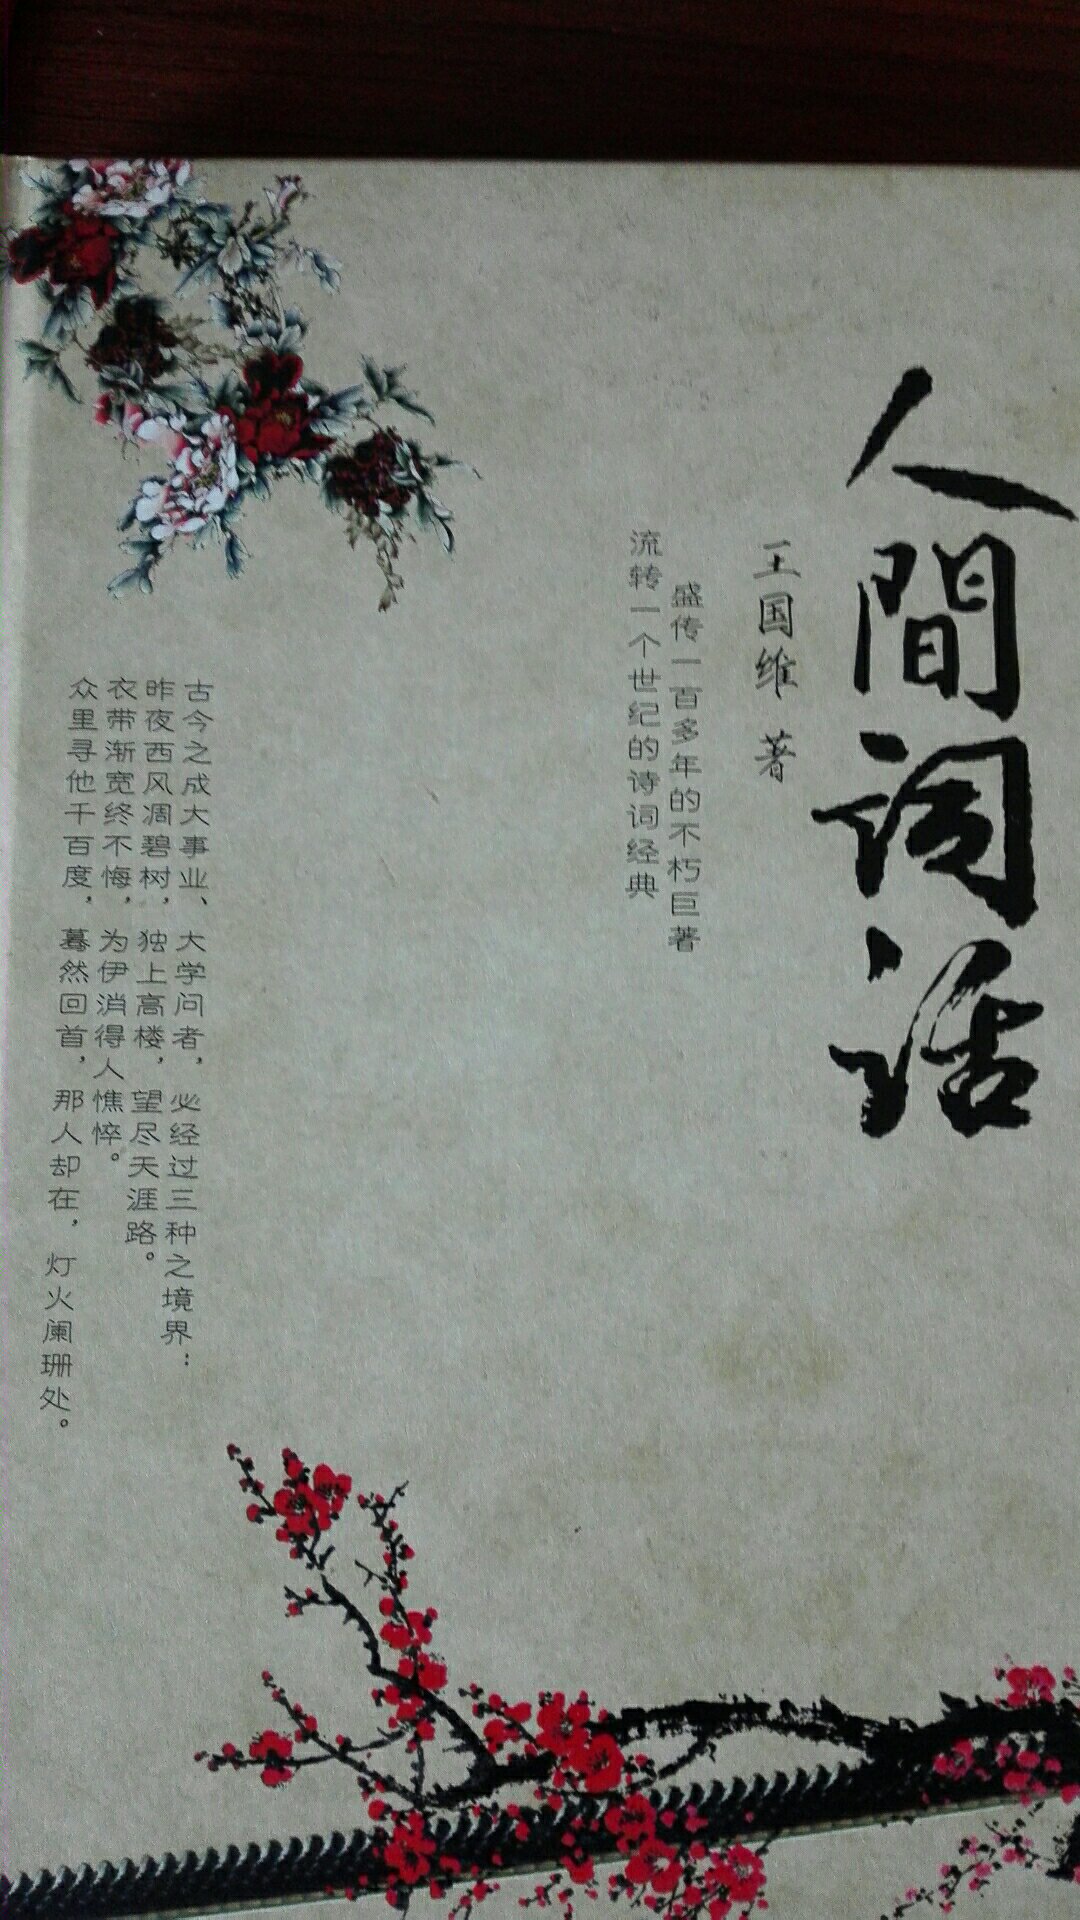 人間词话
王国维 著
盛传一百多年的不朽巨著
流转一个世纪的诗词经典
古今之成大事业、大学问者，必经过三种之境界：
昨夜西风凋碧树，独上高楼，望尽天涯路。
衣带渐宽终不悔，为伊消得人憔悴。
众里寻他千百度，蓦然回首，那人却在，灯火阑珊处。